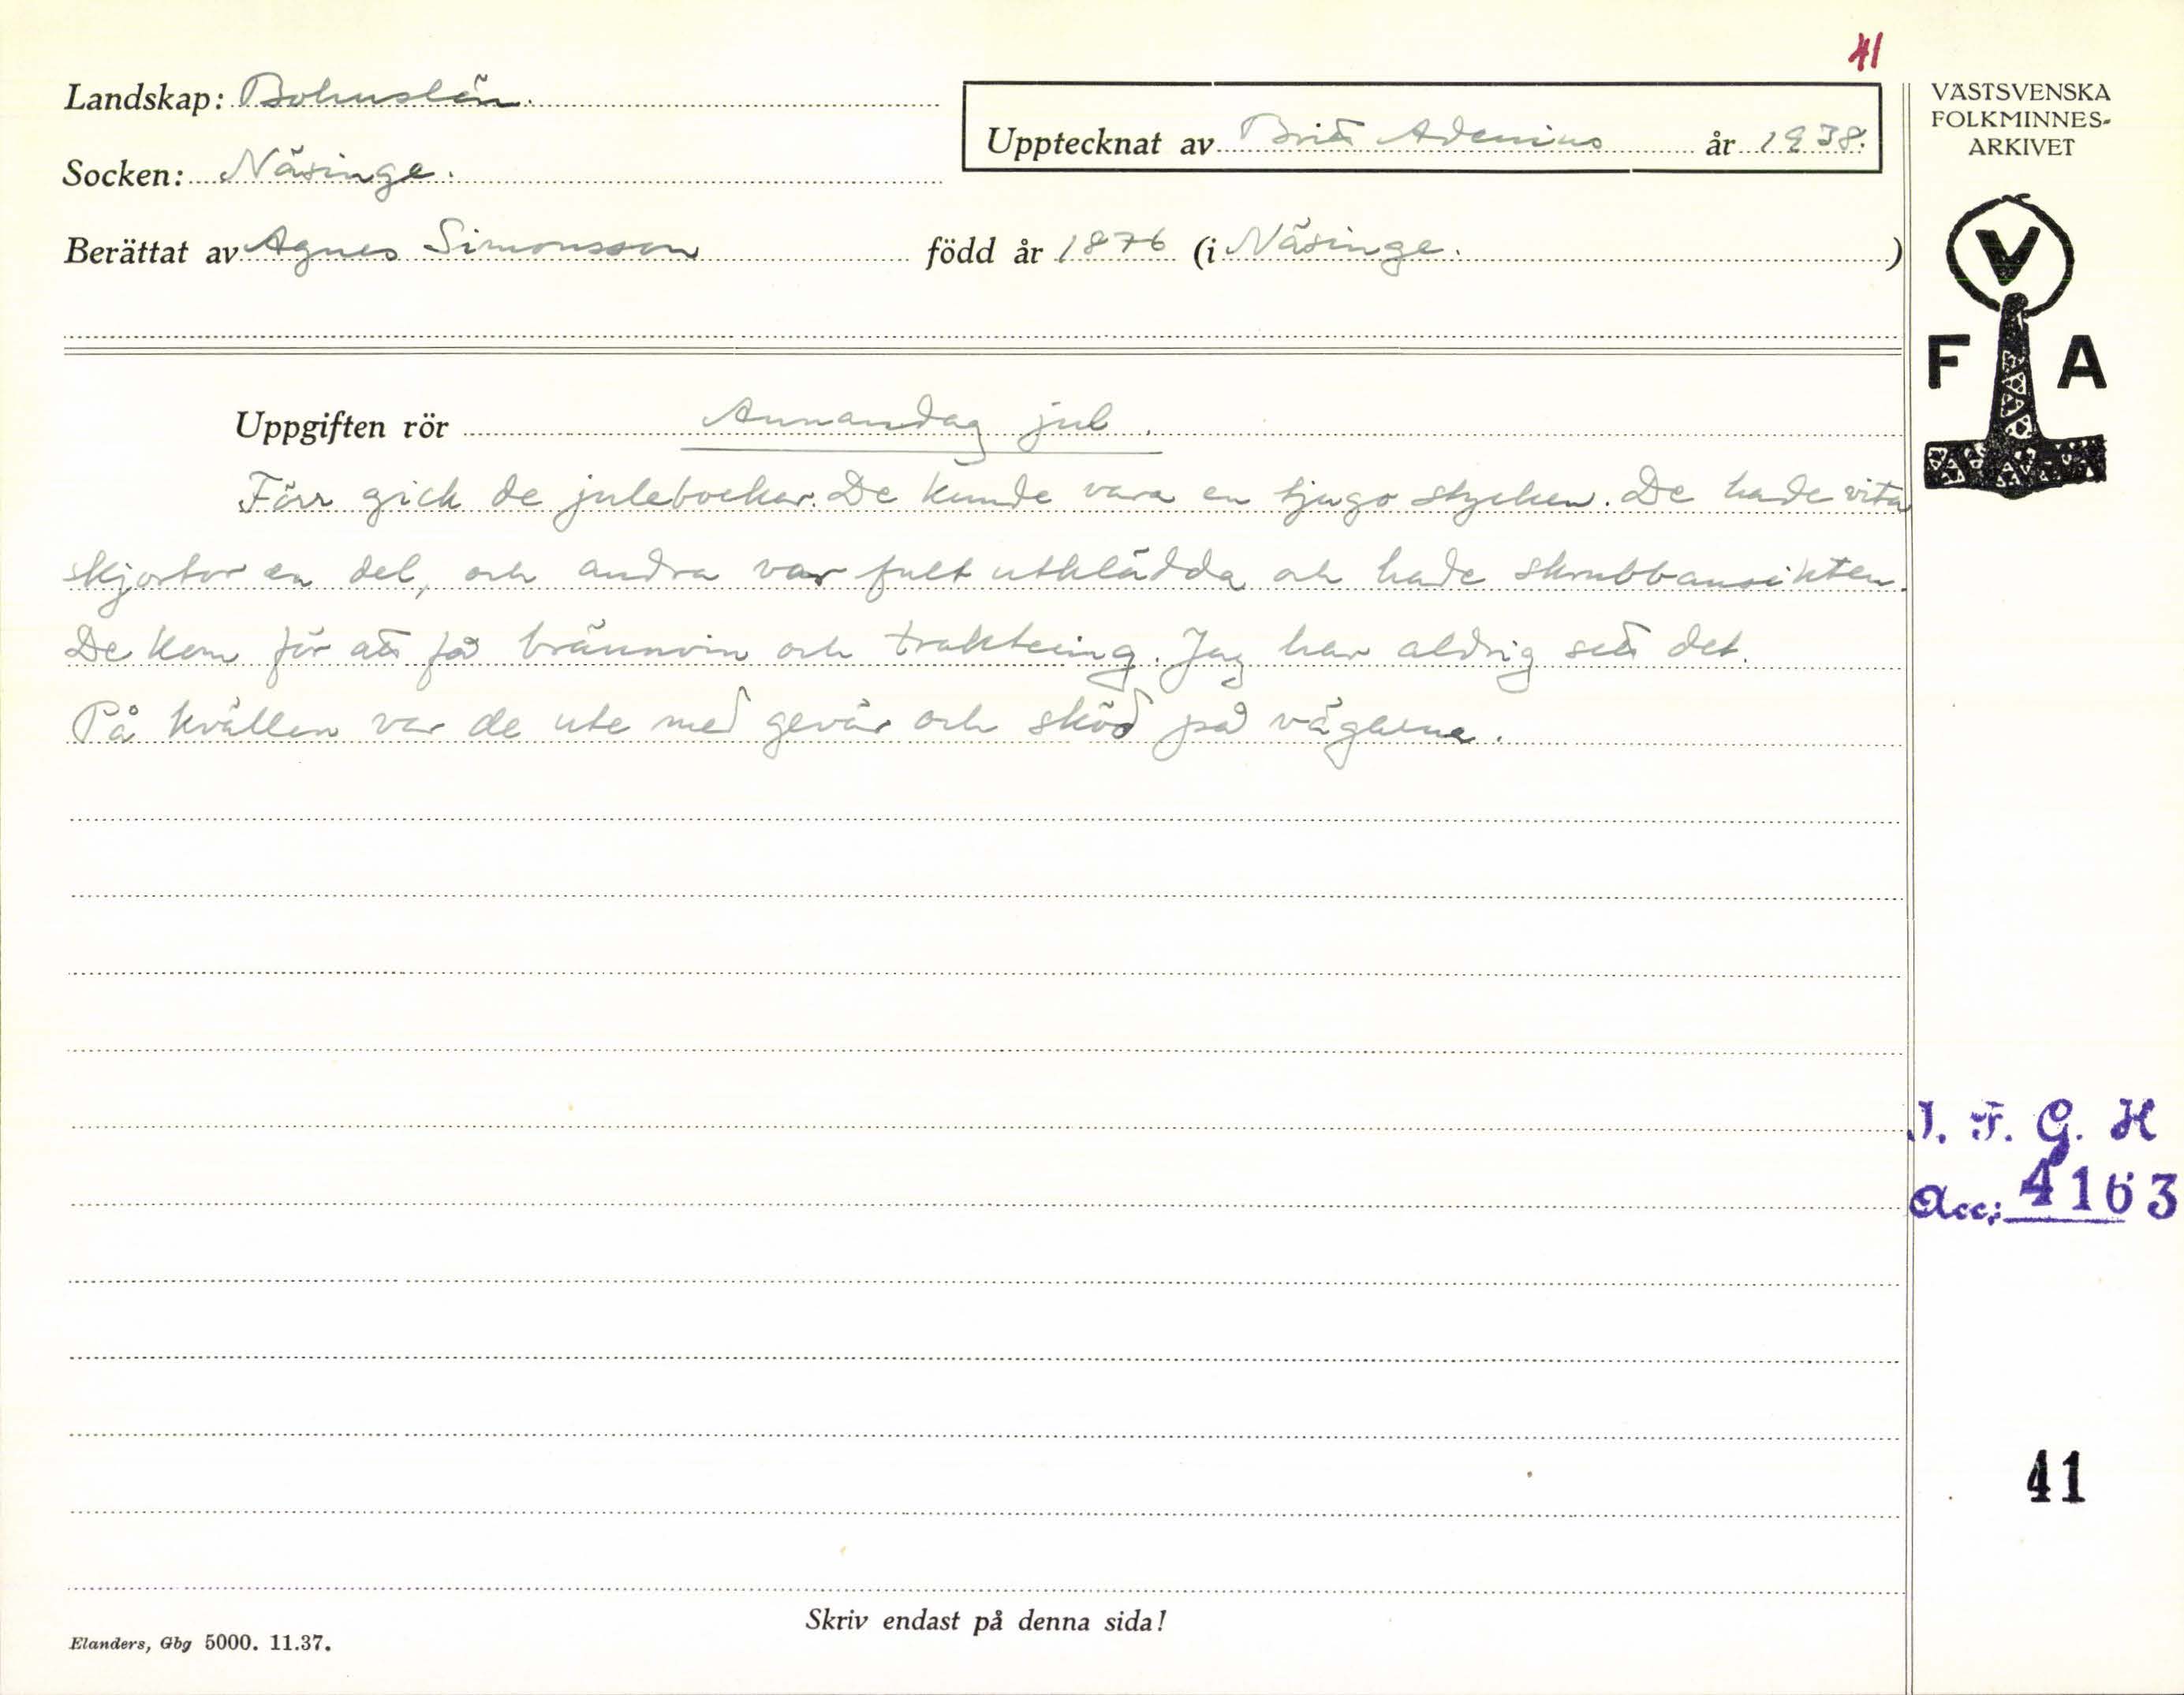 41
Landskap: Bohuslän.
Upptecknat av Britt Adenius år 1938.
Socken: Näsinge.
Berättat av Agnes Simonsson född år 1876 (i Näsinge. )
VÄSTSVENSKA
FOLKMINNES-
ARKIVET
V
F A
Uppgiften rör Annandag jul.
Förr gick de julebockar. De kunde vara en tjugo stycken. De hade vita
skjortor en del, och andra var fult utklädda och hade skrubbansikten.
De kom för att få brännvin och traktering. Jag har aldrig sett det.
På kvällen var de ute med gevär och sköd på vägarna.
I. F. G. H
Acc: 4163
41
Skriv endast på denna sida!
Elanders, Gbg 5000. 11.37.